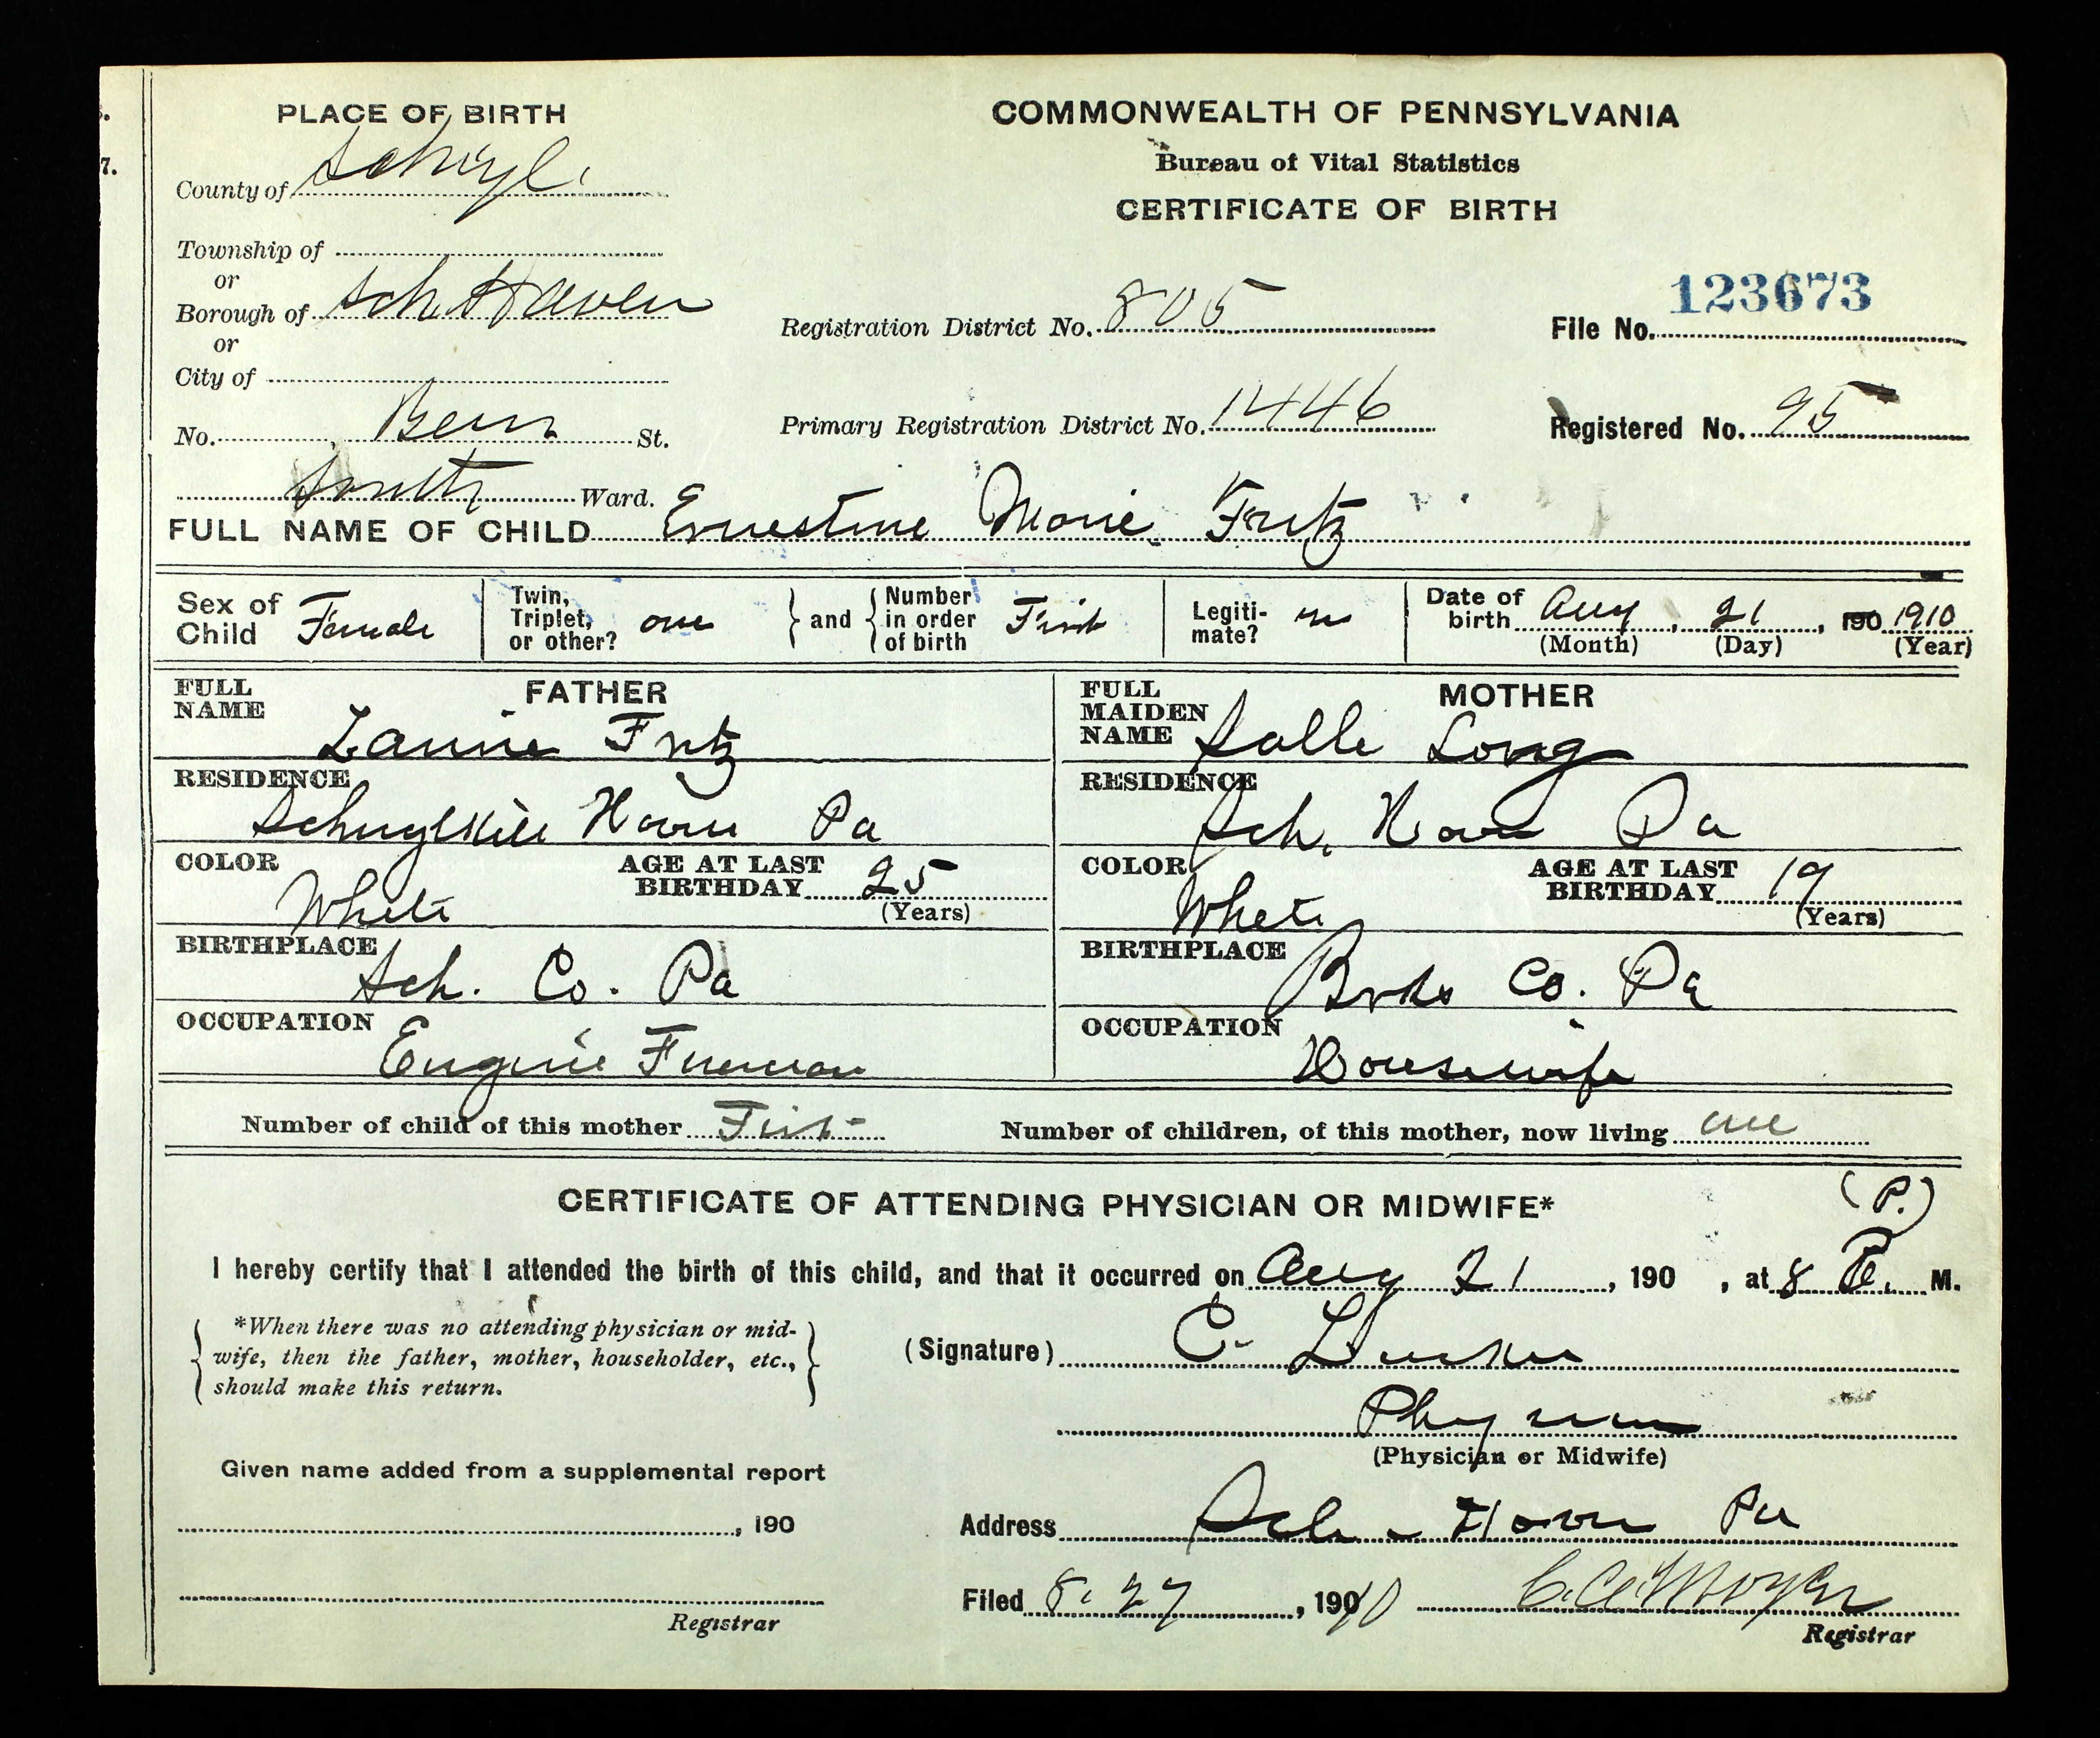 PLACE OF BIRTH
COMMONWEALTH OF PENNSYLVANIA
Bureau of Vital Statistics
CERTIFICATE OF BIRTH
7.
County of Schuyl.
Township of
or
Borough of Sch. Haven
or
City of
No. St.
South Ward.
Registration District No. 805
File No. 123673
Primary Registration District No. 1446
Registered No. 95
FULL NAME OF CHILD Ernestine Marie Fritz
Sex of Child Female
Twin, Triplet, or other? one
and
Number in order of birth First
Legitimate?
Date of birth Aug, 21, 190 1910
(Month) (Day) (Year)
FATHER
FULL NAME Fritz
RESIDENCE
Schuylkill Haven Pa
COLOR White
AGE AT LAST BIRTHDAY 25
(Years)
BIRTHPLACE
Sch. Co. Pa
OCCUPATION
Engine Fireman
MOTHER
FULL MAIDEN NAME Salle Long
RESIDENCE
Sch. Haven Pa
COLOR White
AGE AT LAST BIRTHDAY 19
(Years)
BIRTHPLACE
Berks Co. Pa
OCCUPATION
Housewife
Number of child of this mother First
Number of children, of this mother, now living one
CERTIFICATE OF ATTENDING PHYSICIAN OR MIDWIFE*
(P.)
I hereby certify that I attended the birth of this child, and that it occurred on Aug 21, 190 , at 8 P. M.
*When there was no attending physician or mid-
wife, then the father, mother, householder, etc.,
should make this return.
(Signature) C.
Physician
(Physician or Midwife)
Given name added from a supplemental report
, 190
Address Sch. Haven Pa
Filed 8. 27, 1910 C.A. Moyer
Registrar
Registrar